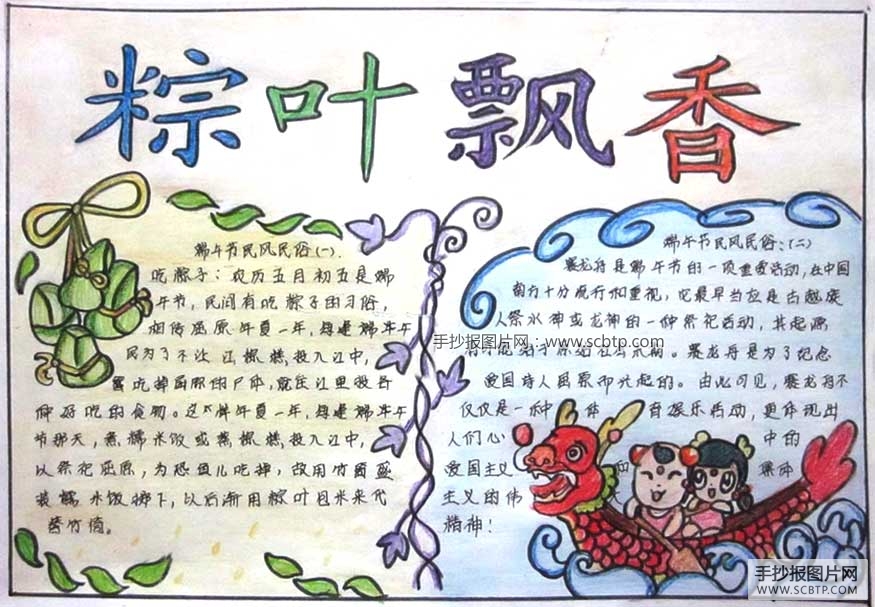 粽叶飘香
端午节民风民俗(一).
吃粽子：农历五月初五是端
午节，民间有吃粽子的习俗，
相传屈原
民为了不让江
投入江中，
种好吃的食物。
节那天，煮糯米饭或蒸
投入江中，
以祭祀屈原，为恐鱼儿吃掉，故用竹筒盛
装糯米饭掷下，以后渐用粽叶包米来代
替竹筒。
端午节民风民俗:(二)
赛龙舟是端午节的一项重要活动,在中国
南方十分流行和重视，它最早当应是古越族
人祭水神或龙神的一种祭祀活动，其起源
赛龙舟是为了纪念
爱国诗人屈原而兴起的。由此可见，赛龙舟不
仅仅是一种体育娱乐活动，更体现出
人们心中的
爱国主义和集体
主义的伟大
精神！
手抄报图片网：www.scbtp.com
手抄报图片网
WWW.SCBTP.COM